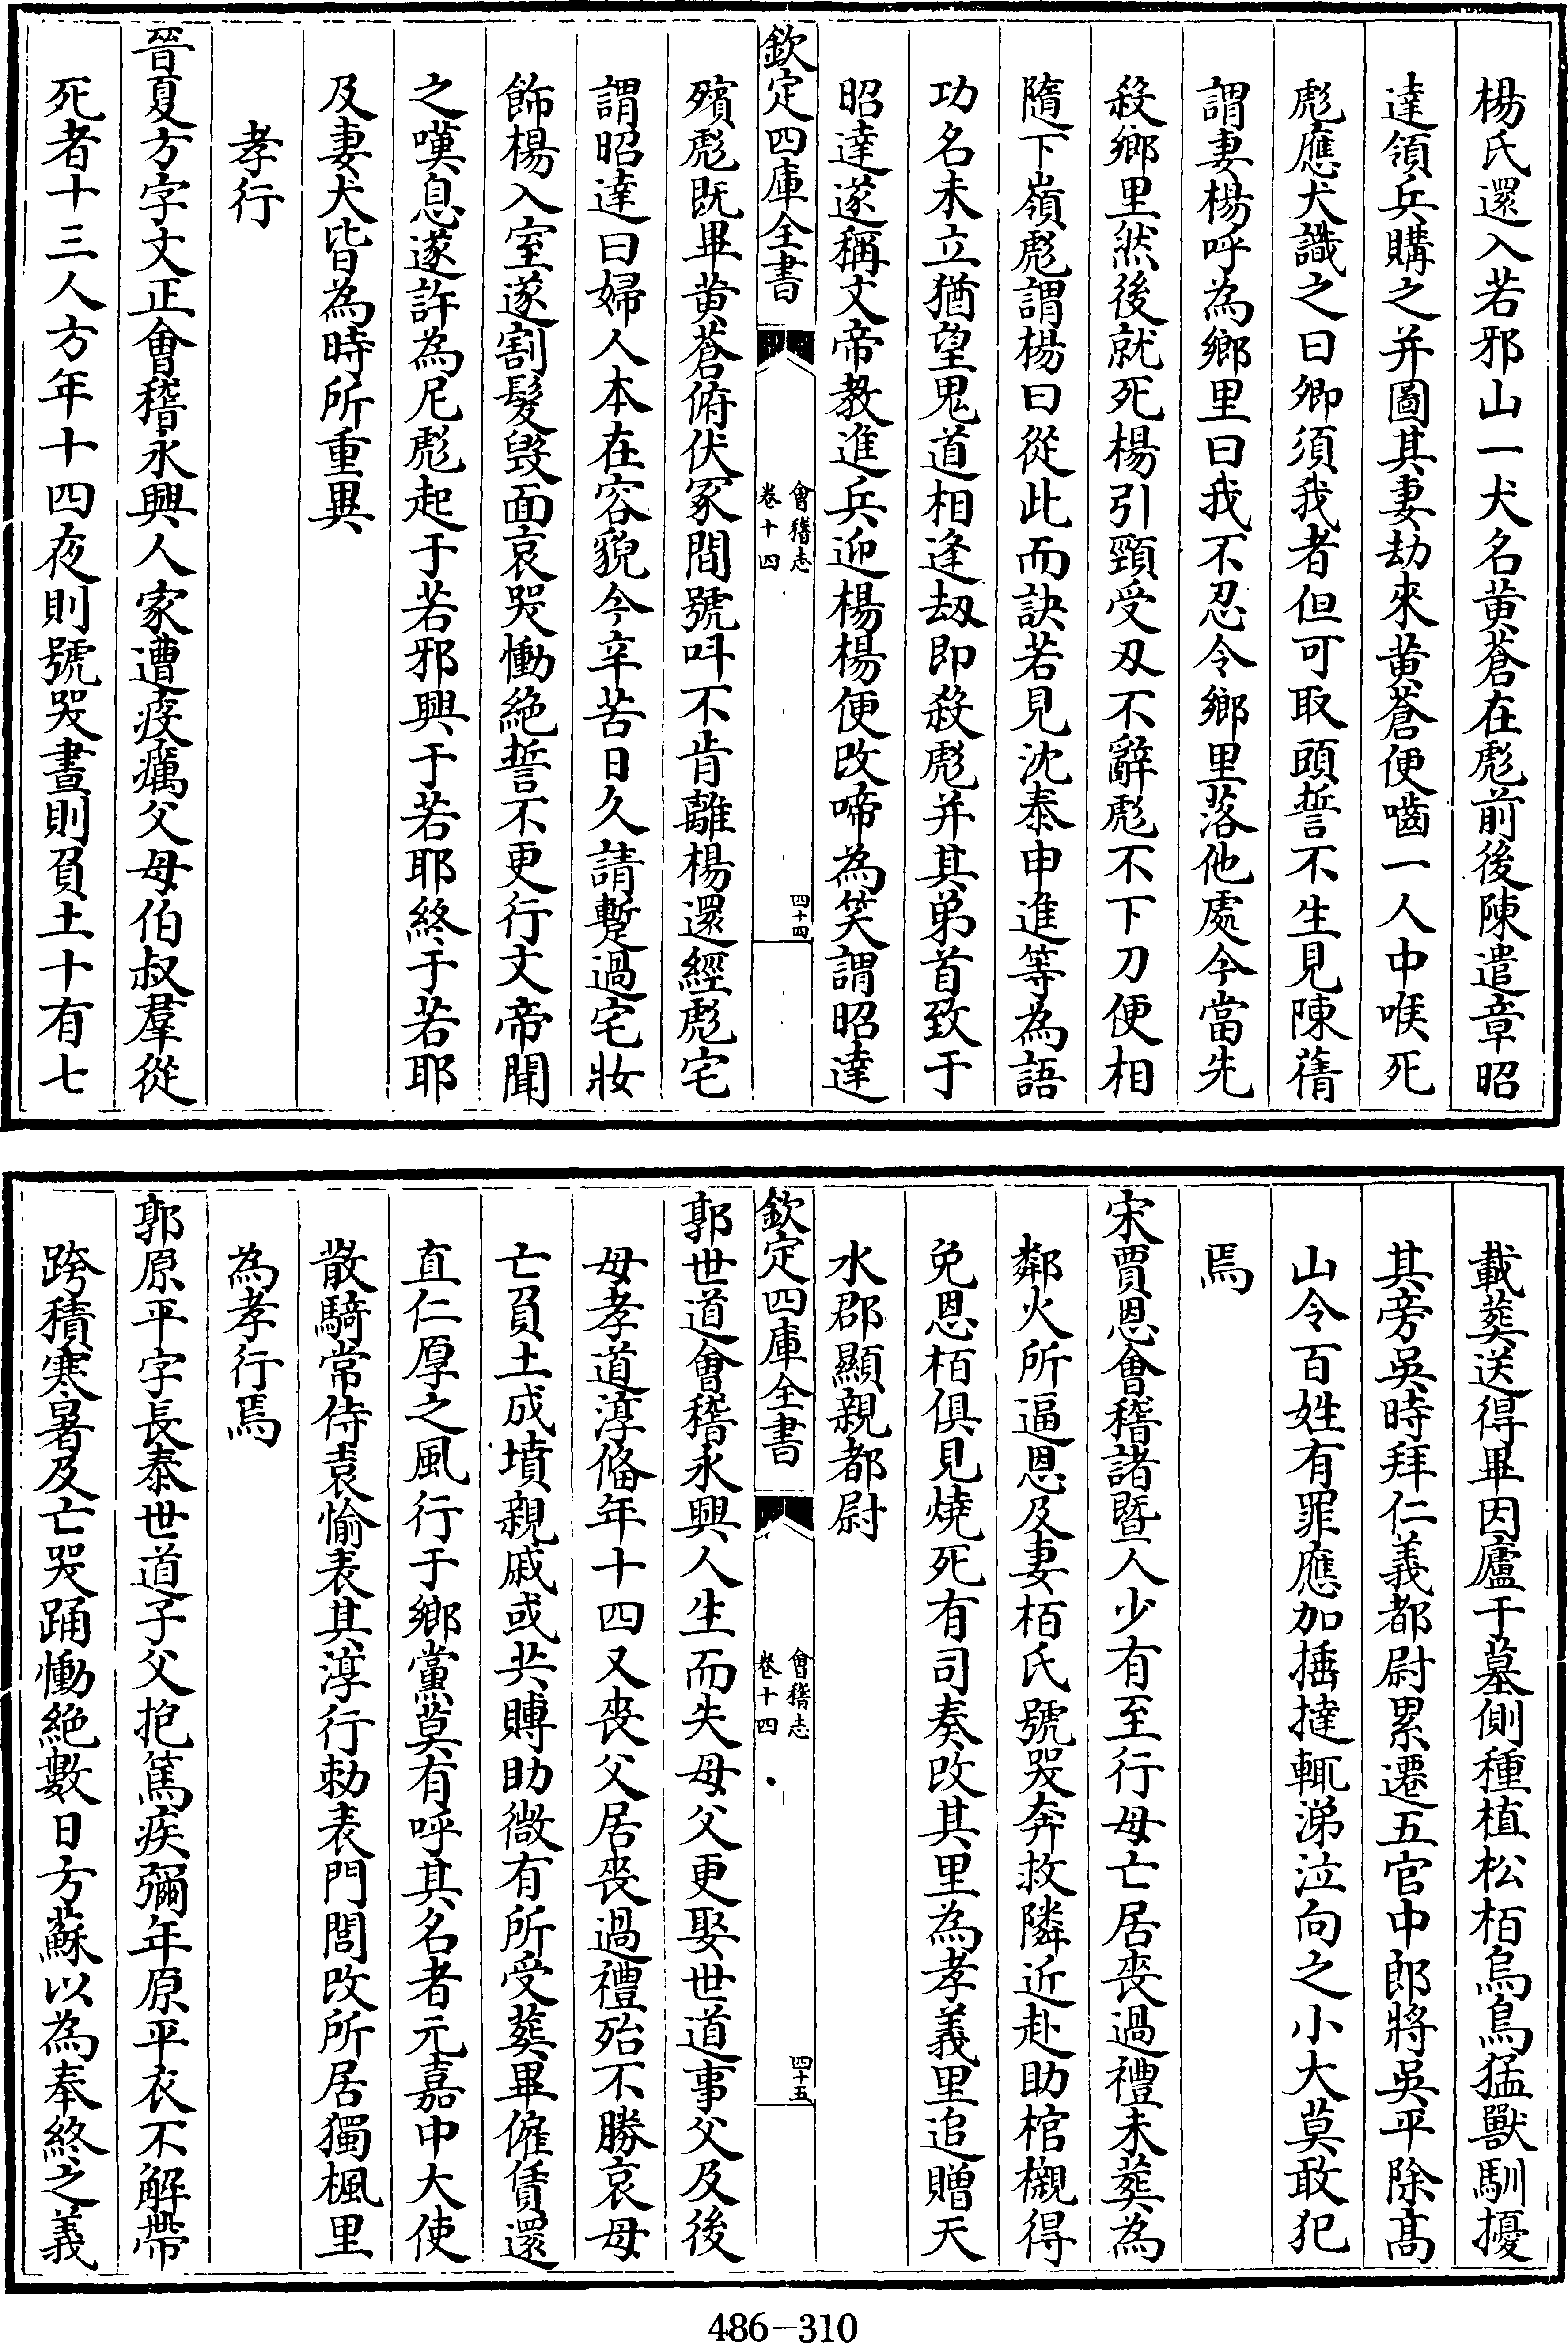 楊氏還入若邪山一犬名黄蒼在彪前後陳遣章昭
達領兵購之并圖其妻劫來黄蒼便嚙一人中喉死
彪應犬識之曰卿須我者但可取頭誓不生見陳蒨
謂妻楊呼為鄉里曰我不忍令鄉里落他處今當先
殺鄉里然後就死楊引頸受刄不辭彪不下刀便相
隨下嶺彪謂楊曰從此而訣若見沈泰申進等為語
功名未立猶望鬼道相逢刼即殺彪并其弟首致于
昭達遂稱文帝教進兵迎楊楊便改啼為笑謂昭達
欽定四庫全書
會稽志
卷十四
四十四
殯彪既畢黄蒼俯伏冢間號呌不肯離楊還經彪宅
謂昭達曰婦人本在容貌今辛苦日久請蹔過宅妝
飾楊入室遂割髮毁面哀哭慟絶誓不更行文帝聞
之嘆息遂許為尼彪起于若邪興于若耶終于若耶
及妻犬皆為時所重異
孝行
晉夏方字文正會稽永興人家遭疫癘父母伯叔羣從
死者十三人方年十四夜則號哭晝則負土十有七
載葬送得畢因廬于墓側種植松栢烏鳥猛獸馴擾
其旁吳時拜仁義都尉累遷五官中郎將吳平除髙
山令百姓有罪應加捶撻輒涕泣向之小大莫敢犯
焉
宋賈恩會稽諸暨人少有至行母亡居喪過禮未葬為
鄰火所逼恩及妻栢氏號哭奔救隣近赴助棺櫬得
免恩栢俱見燒死有司奏改其里為孝義里追贈天
水郡顯親都尉
欽定四庫全書
會稽志
卷十四
四十五
郭世道會稽永興人生而失母父更娶世道事父及後
母孝道淳備年十四又喪父居喪過禮殆不勝哀母
亡負土成墳親戚或共賻助微有所受葬畢傭賃還
直仁厚之風行于鄉黨莫有呼其名者元嘉中大使
散騎常侍袁愉表其淳行勅表門閭改所居獨楓里
為孝行焉
郭原平字長泰世道子父抱篤疾彌年原平衣不解帶
跨積寒暑及亡哭踊慟絶數日方蘇以為奉終之義
486-310